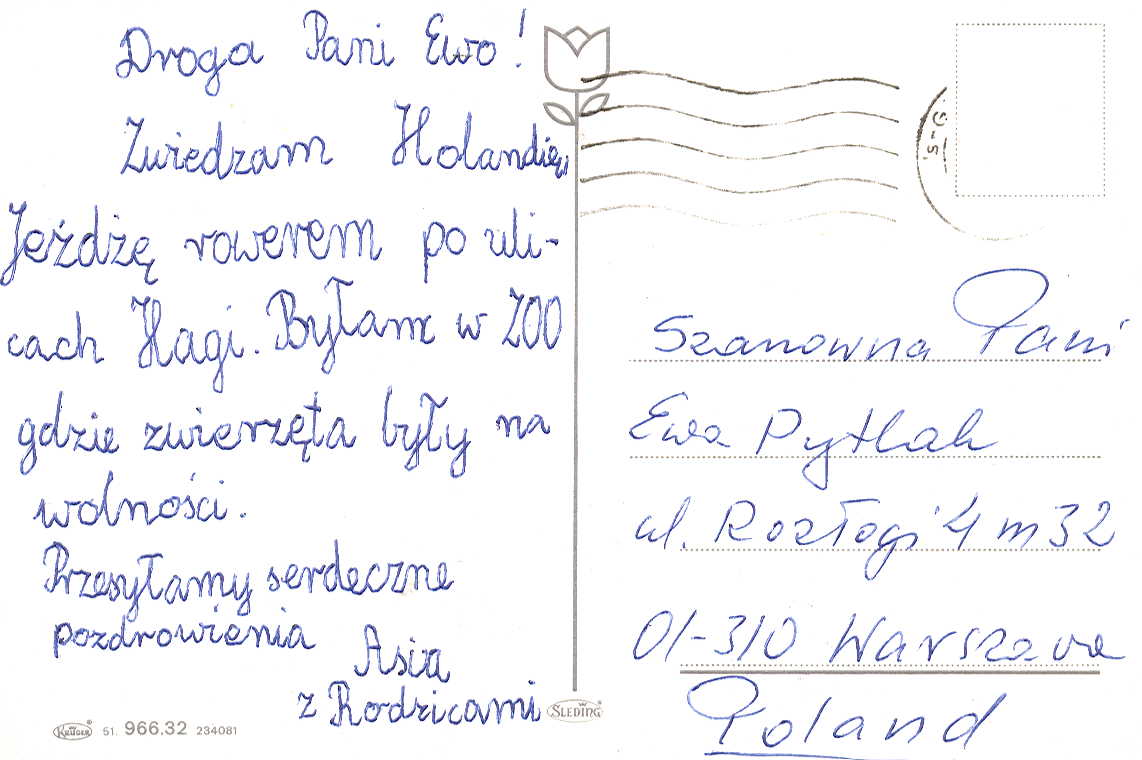 Droga Pani Ewo!
Zwiedzam Holandię,
Jeżdżę rowerem po uli-
cach Hagi. Byłam w ZOO
gdzie zwierzęta były na
wolności.
Przesyłamy serdeczne
pozdrowienia
Asia
z Rodzicami
KRÜGER 51. 966.32 234081
SLEDING
Szanowna Pani
Ewa Pytlak
ul. Rozłogi 4 m 32
01-310 Warszawa
Poland